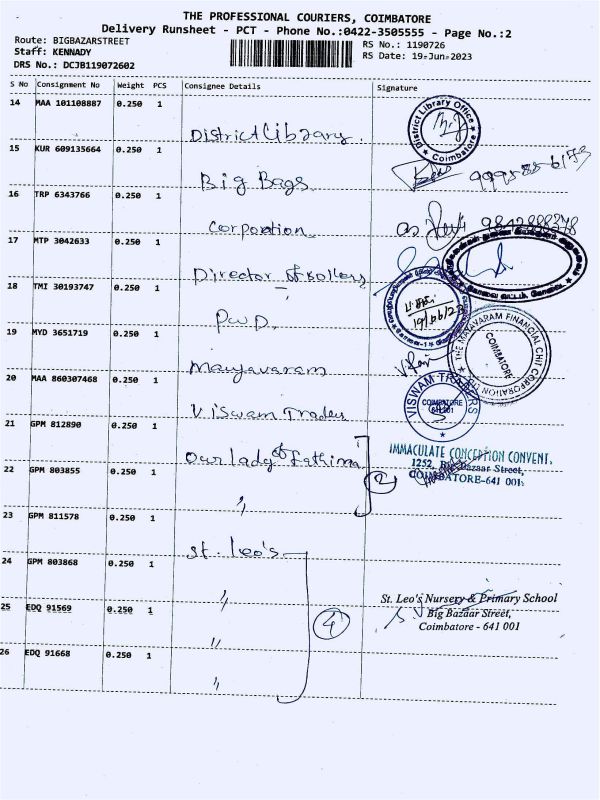 THE PROFESSIONAL COURIERS, COIMBATORE
Delivery Runsheet - PCT - Phone No.:0422-3505555 - Page No.:2
Route: BIGBAZARSTREET
Staff: KENNADY
DRS No.: DCJB119072602
RS No.: 1190726
RS Date: 19-Jun-2023
S No Consignment No Weight PCS Consignee Details Signature
14 MAA 101108887 0.250 1
District Library
District Library Office
Coimbatore
15 KUR 609135664 0.250 1
Big Bags
16 TRP 6343766 0.250 1
Corporation
17 MTP 3042633 0.250 1
Director of
18 TMI 30193747 0.250 1
P.W.D.
19/06/23
19 MYD 3651719 0.250 1
Mayavaram
THE MAYAVARAM FINANCIAL CHIT CORPORATION
COIMBATORE
20 MAA 860307468 0.250 1
Viswam Trades
VISWAM TRADERS
COIMBATORE
641 001
21 GPM 812890 0.250 1
Our lady of Fathima
IMMACULATE CONCEPTION CONVENT,
1252, Big Bazaar Street,
COIMBATORE-641 001.
22 GPM 803855 0.250 1
"
2
23 GPM 811578 0.250 1
St. Leo's
24 GPM 803868 0.250 1
"
St. Leo's Nursery & Primary School
Big Bazaar Street,
Coimbatore - 641 001
25 EDQ 91569 0.250 1
"
4
26 EDQ 91668 0.250 1
"